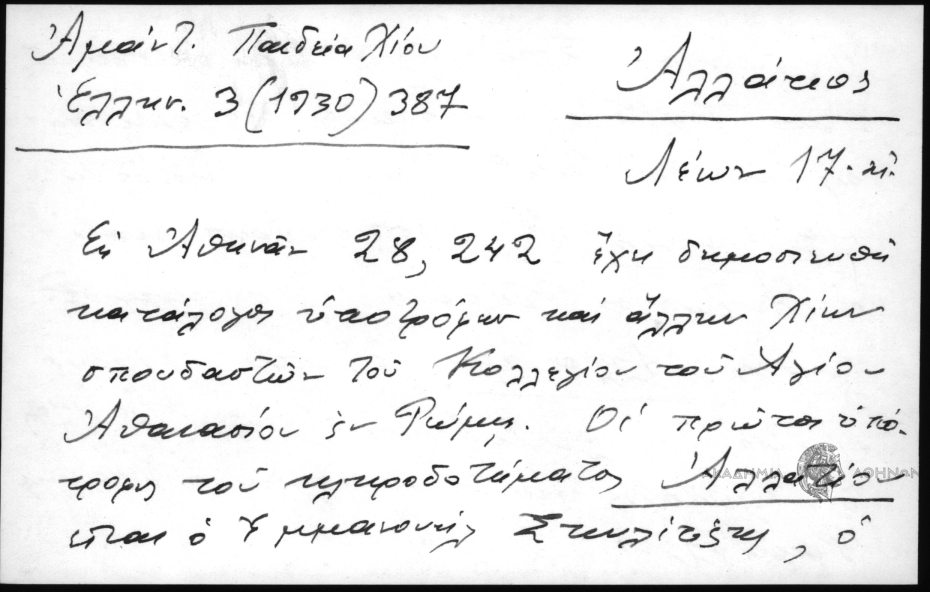 Ἀμάντ. Παιδεία Χίου
Ἑλλην. 3 (1930) 387
Ἀλλάτιος
Λέων 17. αἰ.
Εἰς Ἀθηνᾶν 28, 242 ἔχει δημοσιευθῆ
κατάλογος ὑποτρόφων καὶ ἄλλων Χίων
σπουδαστῶν τοῦ Κολλεγίου τοῦ Ἁγίου
Ἀθανασίου ἐν Ρώμῃ. Οἱ πρῶτοι ὑπό-
τροφοι τοῦ κληροδοτήματος Ἀλλατίου
εἶναι ὁ Ἐμμανουὴλ , ὁ
ΑΚΑΔΗΜΙΑ ΑΘΗΝΩΝ